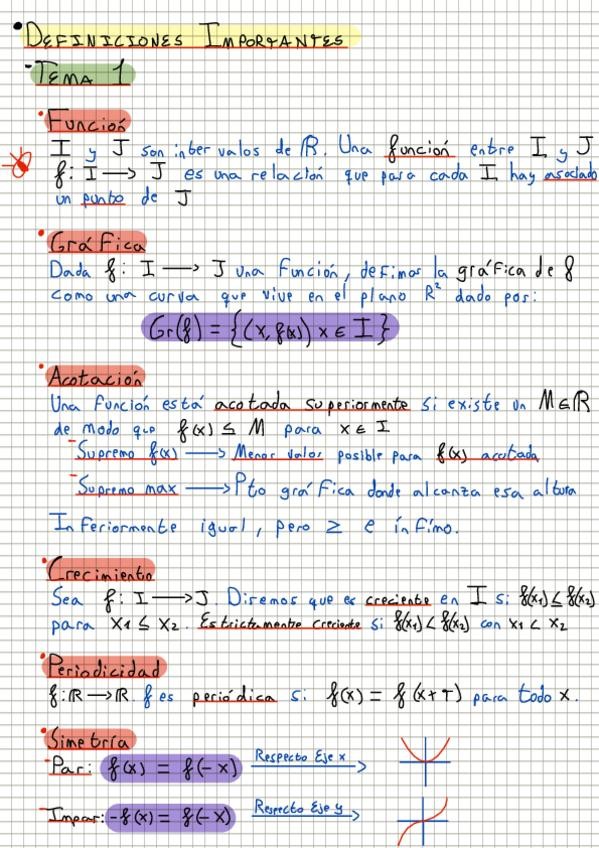 DEFINICIONES IMPORTANTES
TEMA 1
Función
I y J son intervalos de ℝ. Una función entre I y J
f: I → J es una relación que para cada I hay asociado
un punto de J
Gráfica
Dada f: I → J una función, definos la gráfica de f
como una curva que vive en el plano R² dado por:
Gr(f) = {(x, f(x)) x ∈ I}
Acotación
Una función está acotada superiormente si existe un M∈ℝ
de modo que f(x) ≤ M para x ∈ I
Supremo f(x) → Menor valor posible para f(x) acotada
Supremo max → Pto gráfica donde alcanza esa altura
Inferiormente igual, pero ≥ e ínfimo.
Crecimiento
Sea f: I → J. Diremos que es creciente en I si f(x1) ≤ f(x2)
para x1 ≤ x2. Estrictamente creciente si f(x1) < f(x2) con x1 < x2
Periodicidad
f: ℝ → ℝ. f es periódica si f(x) = f(x+T) para todo x.
Simetría
Par: f(x) = f(-x) Respecto Eje x
Impar: -f(x) = f(-x) Respecto Eje y